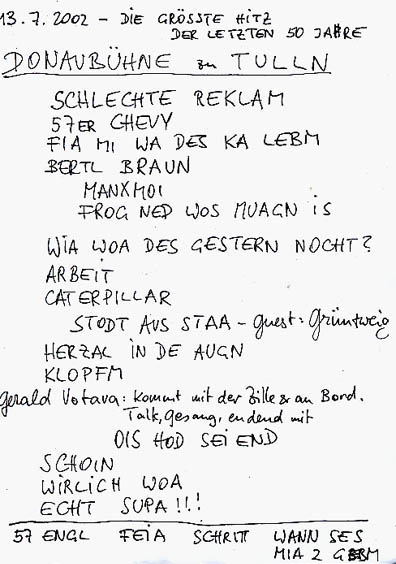 13.7.2002 - DIE GRÖSSTE HITZ
DER LETZTEN 50 JAHRE
DONAUBÜHNE zu TULLN
SCHLECHTE REKLAM
57ER CHEVY
FIA MI WA DES KA LEBM
BERTL BRAUN
MANXMOI
FROG NED WOS MUAGN IS
WIA WOA DES GESTERN NOCHT?
ARBEIT
CATERPILLAR
STODT AUS STAA - guest: Grüntweig
HERZAL IN DE AUGN
KLOPFM
Gerald Votava: kommt mit der Zille an Bord.
Talk, Gesang, endend mit
OIS HOD SEI END
SCHOIN
WIRLICH WOA
ECHT SUPA!!!
57 ENGL FEIA SCHRITT WANN SES
MIA 2 GBM